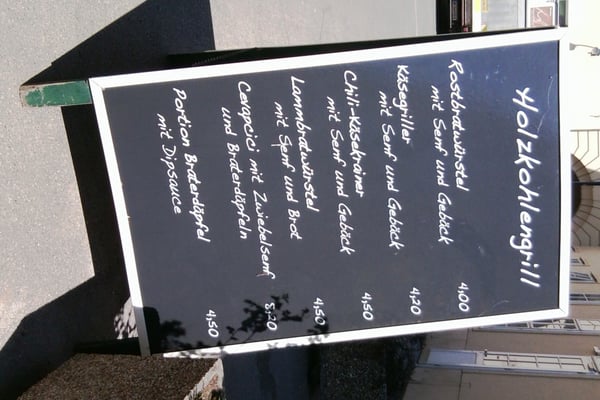 Holzkohlengrill
Rostbratwürstel
mit Senf und Gebäck 4,00
Käsegriller
mit Senf und Gebäck 4,20
Chili-Käsekrainer
mit Senf und Gebäck 4,50
Lammbratwürstel
mit Senf und Brot 4,50
Cevapcici mit Zwiebelsenf
und Braterdäpfeln 8,20
Portion Braterdäpfel
mit Dipsauce 4,50